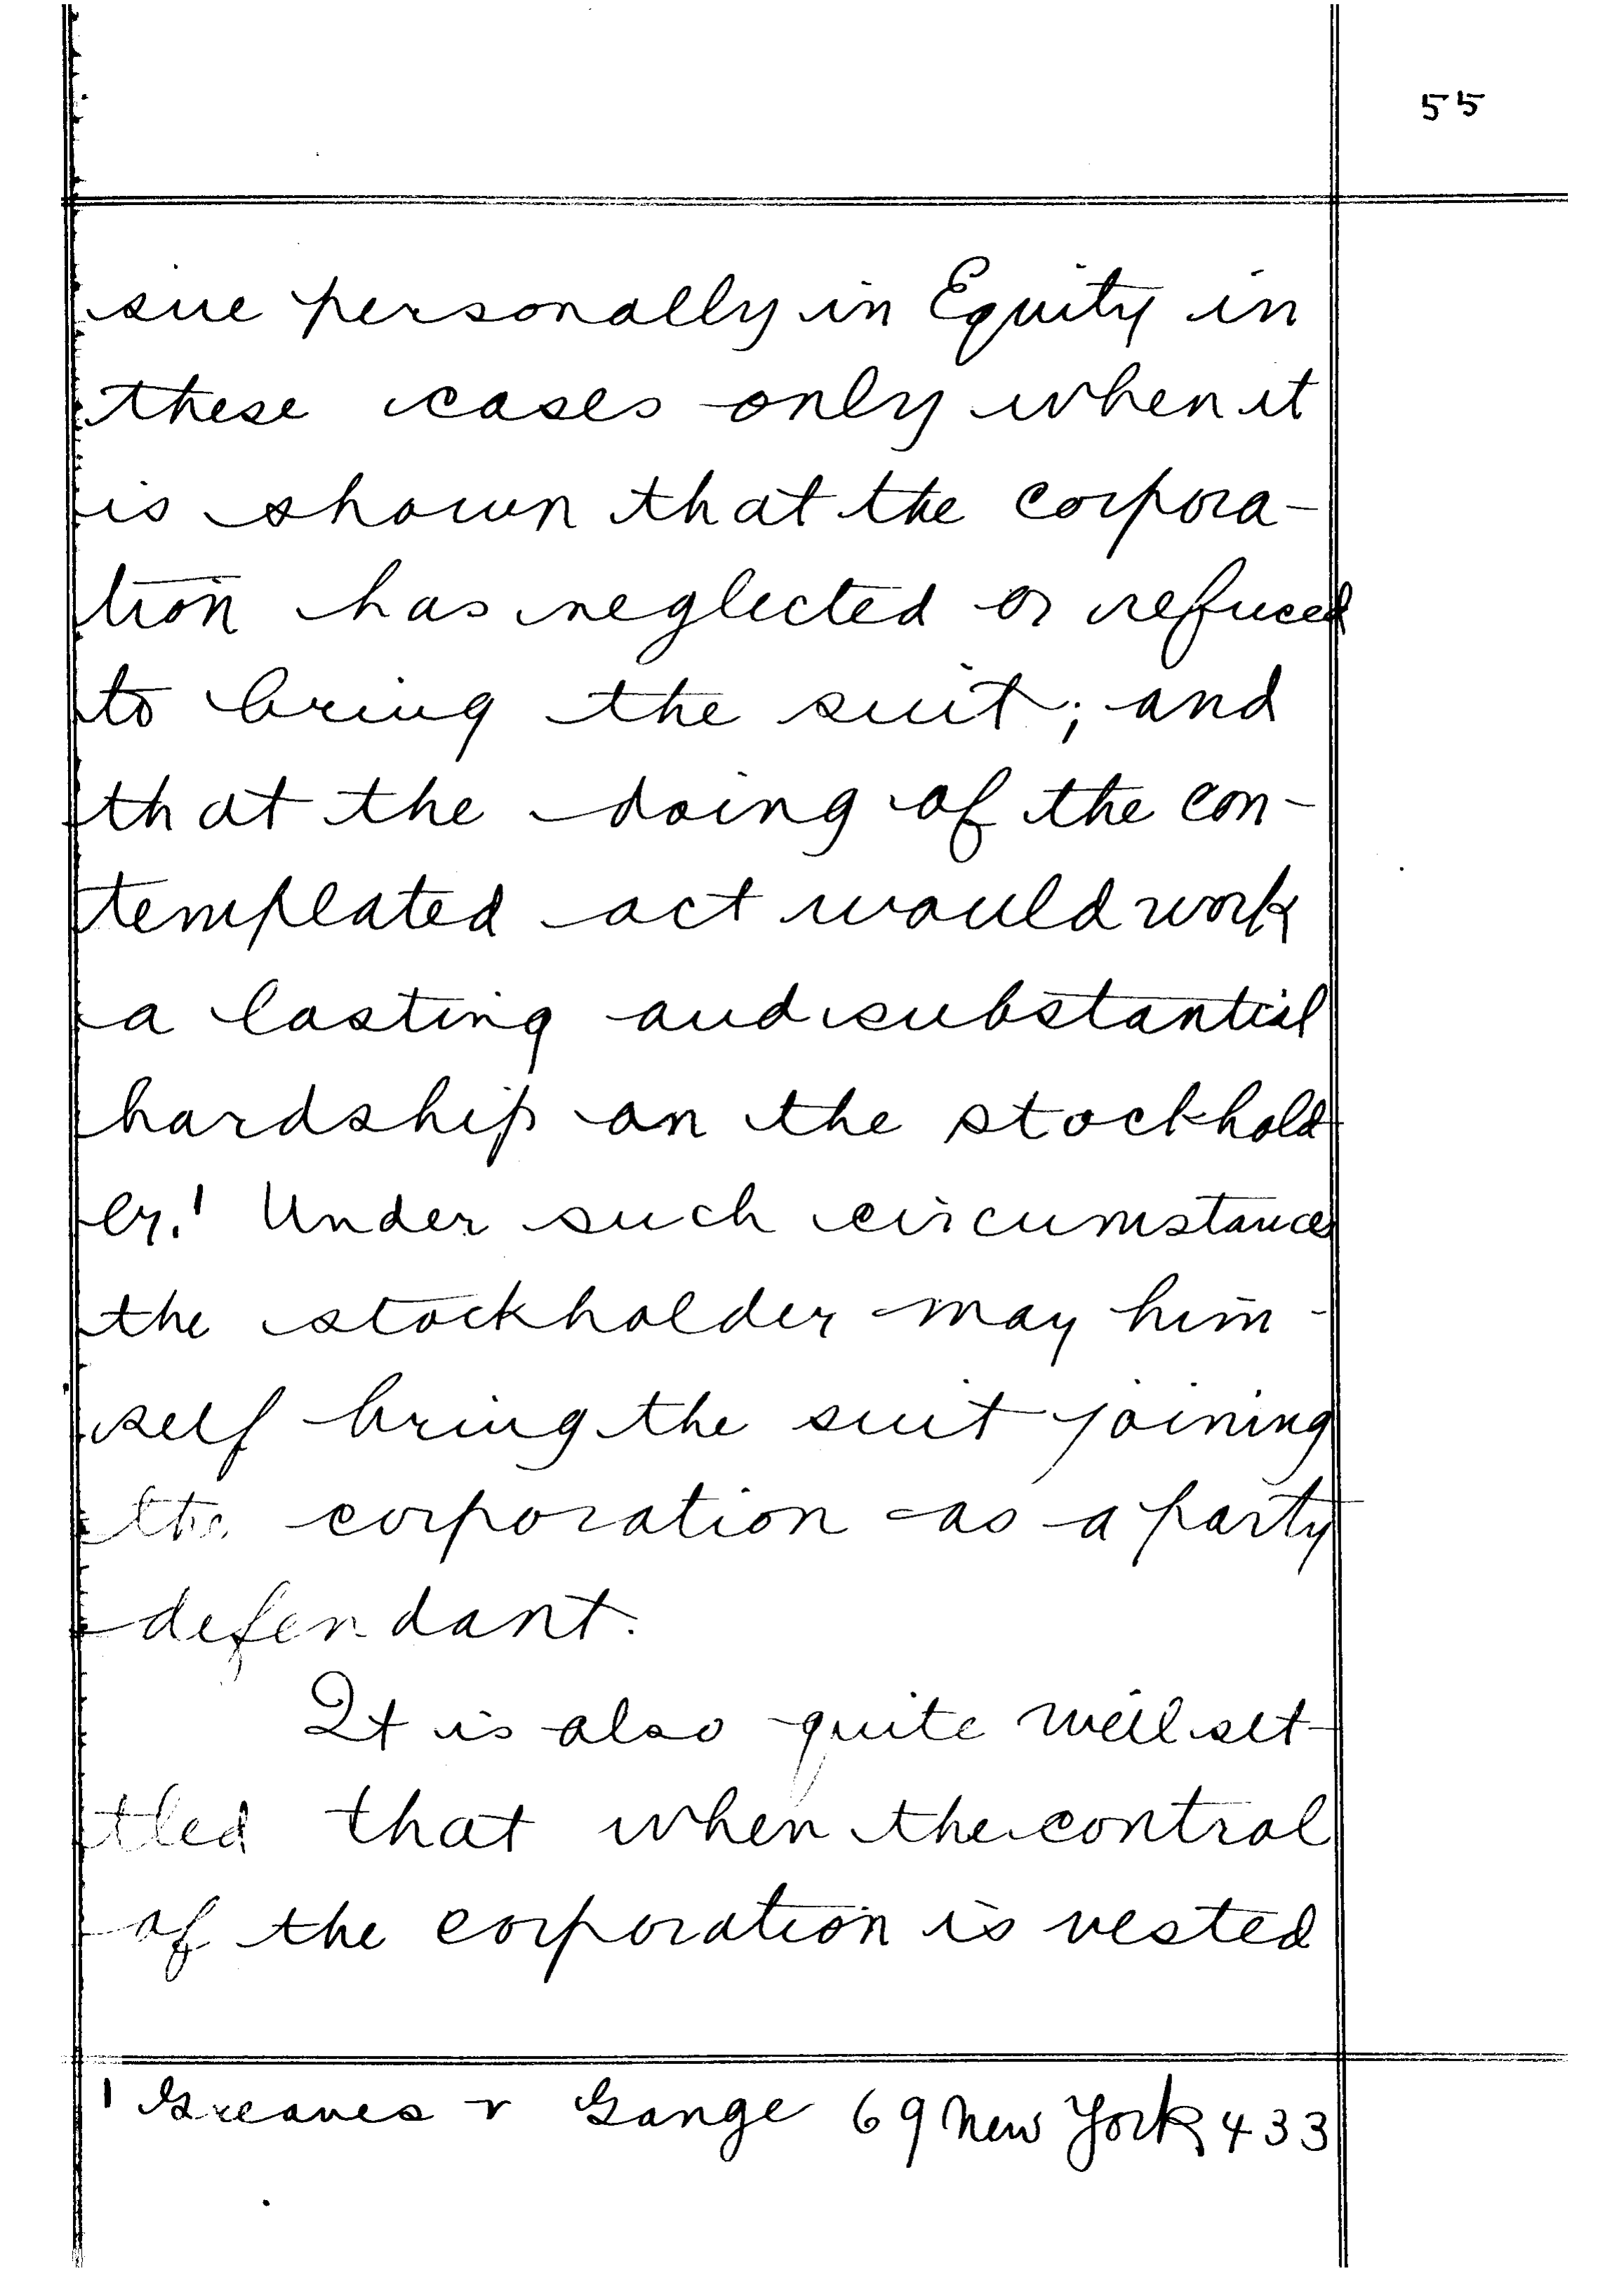 55
sue personally in Equity in
these cases only when it
is shown that the corpora-
tion has neglected or refuced
to bring the suit; and
that the doing of the con-
templated act would work
a lasting and substantial
hardship on the stockhold
er.¹ Under such circumstances
the stockholder may him-
self bring the suit joining
the corporation as a party
defendant.
It is also quite well set-
tled that when the control
of the corporation is vested
¹ Greaves v Gange 69 New York 433